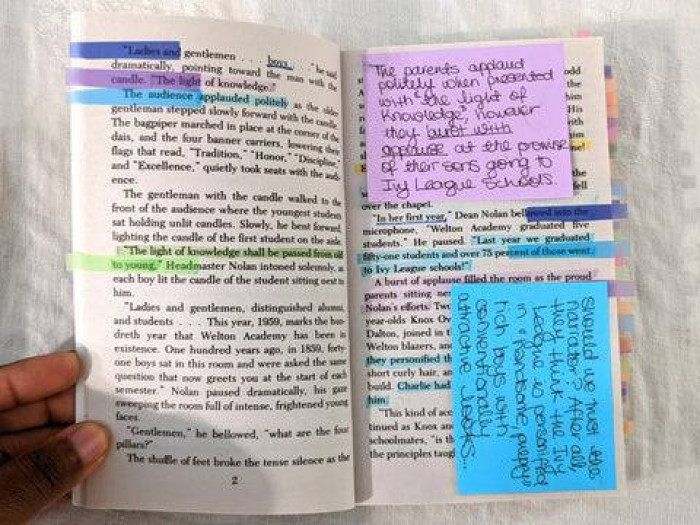 "Ladies and gentlemen . . . boys . . . " he said
dramatically, pointing toward the man with the
candle. "The light of knowledge."
The audience applauded politely as the older
gentleman stepped slowly forward with the candle.
The bagpiper marched in place at the corner of the
dais, and the four banner carriers, lowering their
flags that read, "Tradition," "Honor," "Discipline,"
and "Excellence," quietly took seats with the audi-
ence.
The gentleman with the candle walked to the
front of the audience where the youngest students
sat holding unlit candles. Slowly, he bent forward,
lighting the candle of the first student on the aisle.
"The light of knowledge shall be passed from old
to young," Headmaster Nolan intoned solemnly, as
each boy lit the candle of the student sitting next to
him.
"Ladies and gentlemen, distinguished alumni,
and students . . . This year, 1959, marks the hun-
dreth year that Welton Academy has been in
existence. One hundred years ago, in 1859, forty-
one boys sat in this room and were asked the same
question that now greets you at the start of each
semester." Nolan paused dramatically, his gaze
sweeping the room full of intense, frightened young
faces.
"Gentlemen," he bellowed, "what are the four
pillars?"
The shuffle of feet broke the tense silence as the
2
The parents applaud
politely when presented
with "the light of
knowledge", however
they burst with
applause at the promise
of their sons going to
Ivy League schools.
odd
him
His
with
him
the
fell
over the chapel.
"In her first year," Dean Nolan bellowed into the
microphone, "Welton Academy graduated five
students." He paused. "Last year we graduated
fifty-one students and over 75 percent of those went
to Ivy League schools!"
A burst of applause filled the room as the proud
parents sitting
Nolan's efforts. Two
year-olds Knox Ov
Dalton, joined in t
Welton blazers, an
they personified th
short curly hair, an
build. Charlie had
him.
"This kind of acc
tinued as Knox an
schoolmates, "is th
the principles taug
should we trust the
narrator? After all,
they think the Ivy
League is personified
in "handsome, preppy"
rich boys with
conventionally
attractive looks...